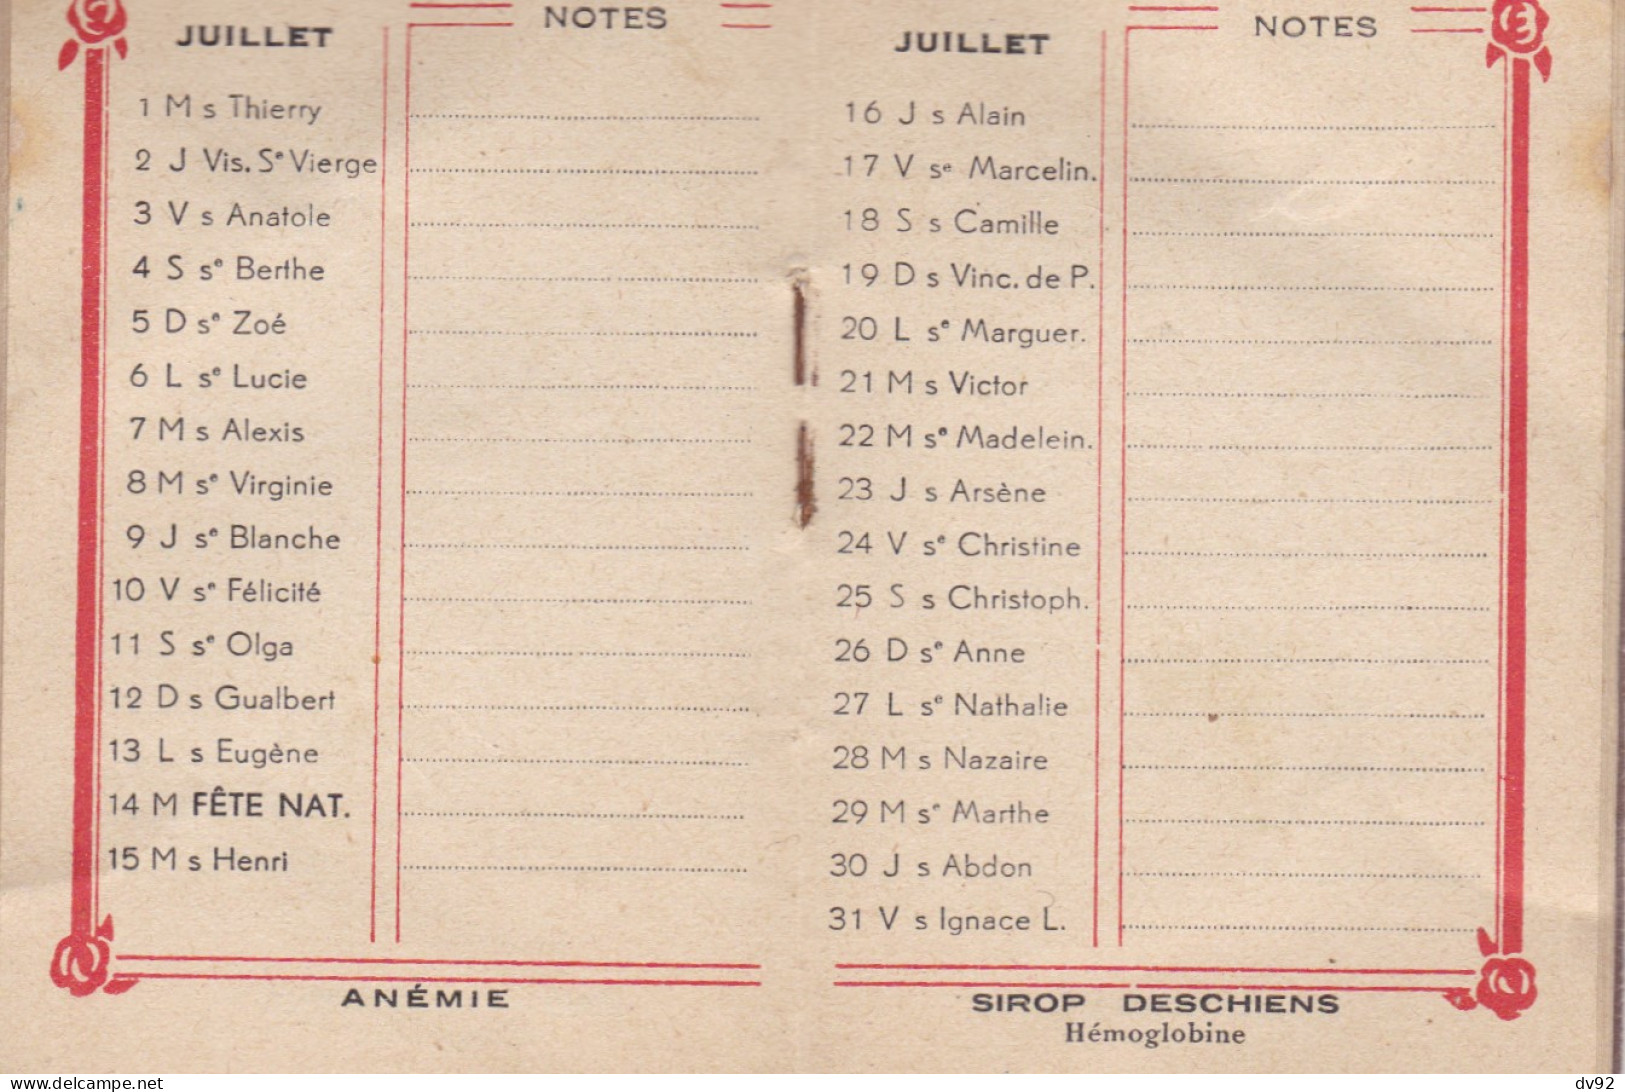 JUILLET
NOTES
1 M s Thierry
2 J Vis. Sᵉ Vierge
3 V s Anatole
4 S sᵉ Berthe
5 D sᵉ Zoé
6 L sᵉ Lucie
7 M s Alexis
8 M sᵉ Virginie
9 J sᵉ Blanche
10 V sᵉ Félicité
11 S sᵉ Olga
12 D s Gualbert
13 L s Eugène
14 M FÊTE NAT.
15 M s Henri
ANÉMIE
JUILLET
NOTES
16 J s Alain
17 V sᵉ Marcelin.
18 S s Camille
19 D s Vinc. de P.
20 L sᵉ Marguer.
21 M s Victor
22 M sᵉ Madelein.
23 J s Arsène
24 V sᵉ Christine
25 S s Christoph.
26 D sᵉ Anne
27 L sᵉ Nathalie
28 M s Nazaire
29 M sᵉ Marthe
30 J s Abdon
31 V s Ignace L.
SIROP DESCHIENS
Hémoglobine
www.delcampe.net
dv92